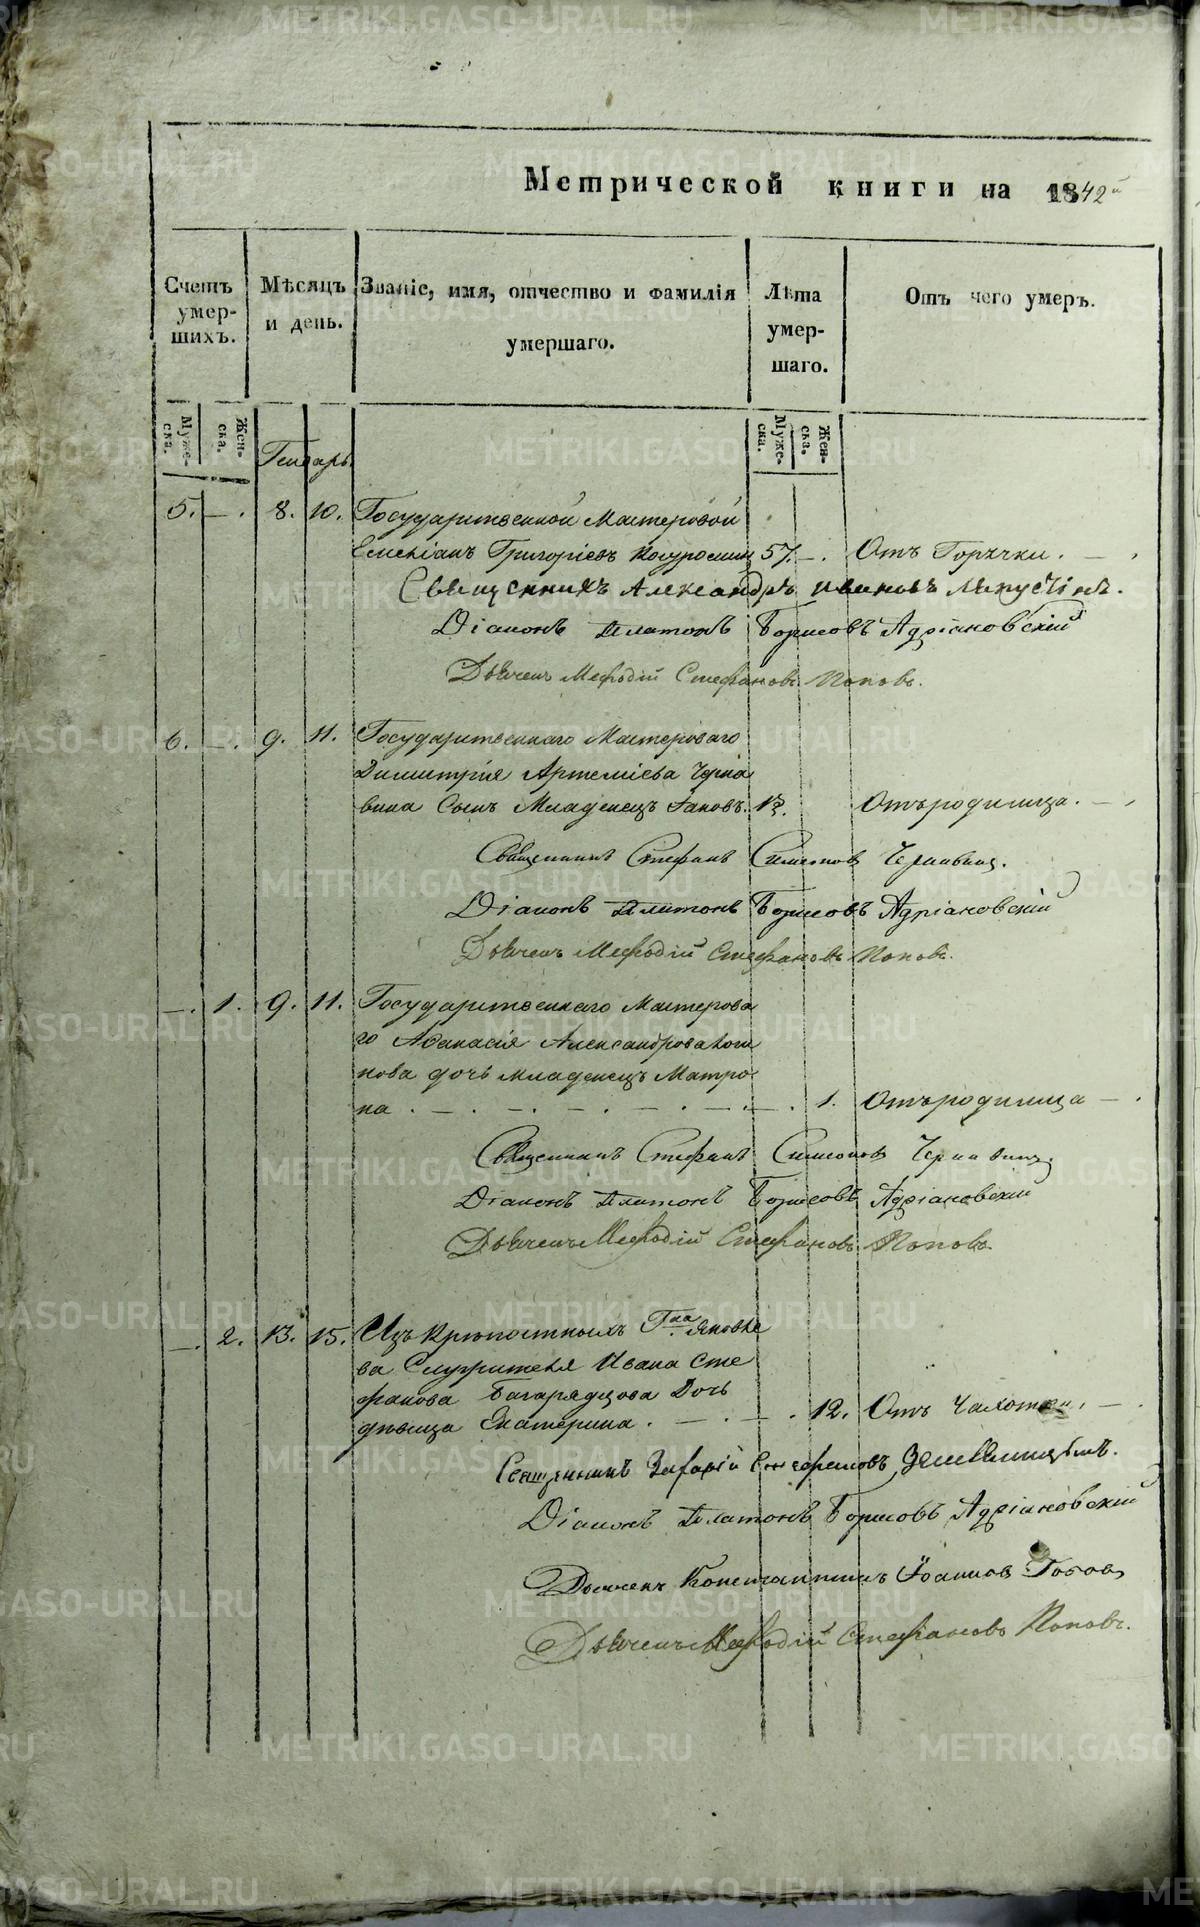 Метрической книги на 1842й
Счетъ умершихъ.
Мѣсяцъ и день.
Званіе, имя, отчество и фамилія умершаго.
Лѣта умершаго.
Отъ чего умеръ.
Мужеска.
Женска.
Мужеска.
Женска.
Генварь
5. — . 8. 10. Государственной Мастеровой
Григоріевъ 57. — . Отъ Горячки. —
Священникъ Александръ Ивановъ
Діаконъ Платонъ Борисовъ Адріановскій
Дьячекъ Мефодій Стефановъ Поповъ.
6. — . 9. 11. Государственнаго Мастероваго
Димитрія Артеміева Черна
вина Сынъ Младенецъ Іаковъ. Отъ родимца. —
Священникъ Стефанъ Симеоновъ Чернавинъ.
Діаконъ Платонъ Борисовъ Адріановскій
Дьячекъ Мефодій Стефановъ Поповъ.
— . 1. 9. 11. Государственнаго Мастерова
го Афанасія Александрова
нова дочь младенецъ Матро
на . — . — . — . — . 1. Отъ родимца — .
Священникъ Стефанъ Симеоновъ Чернавинъ.
Діаконъ Платонъ Борисовъ Адріановскій
Дьячекъ Мефодій Стефановъ Поповъ.
— . 2. 13. 15. Изъ Крѣпостныхъ Гна Яковле
ва Служителя Ивана Сте
фанова Багарядцова Дочь
дѣвица Екатерина . — . — . 12. Отъ Чахотки. — .
Священникъ Захарій Стефановъ
Діаконъ Платонъ Борисовъ Адріановскій
Дьячекъ Константинъ Іоанновъ
Дьячекъ Мефодій Стефановъ Поповъ.
METRIKI.GASO-URAL.RU